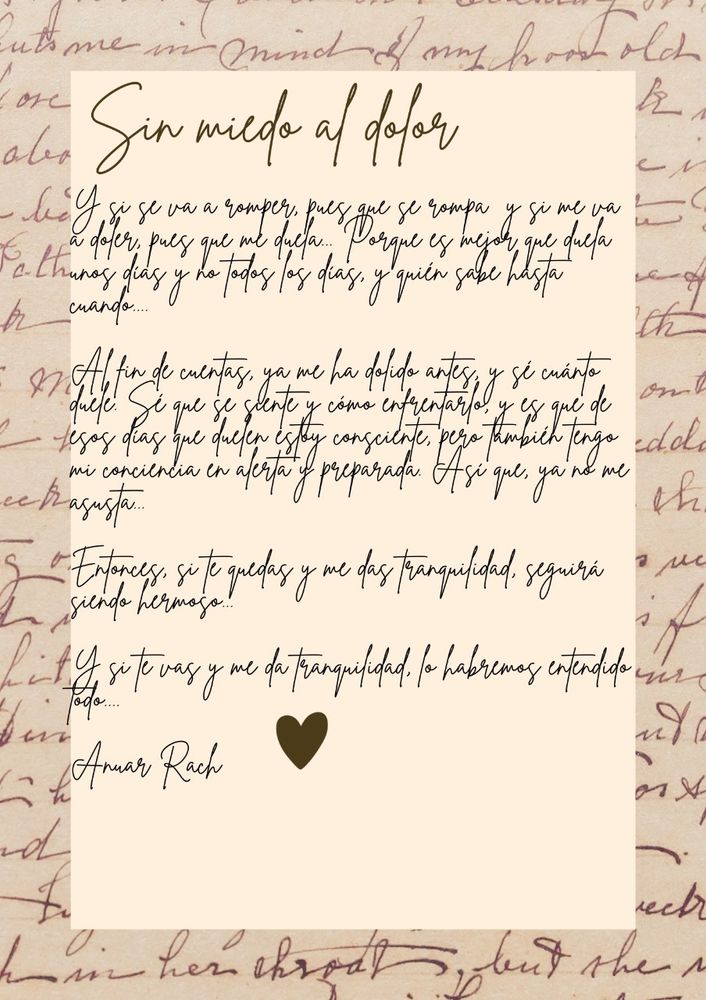 puts me in mind of my poor old
Sin miedo al dolor
Y si se va a romper, pues que se rompa y si me va
a doler, pues que me duela... Porque es mejor que duela
unos días y no todos los días, y quién sabe hasta
cuando....
Al fin de cuentas, ya me ha dolido antes, y sé cuánto
duele. Sé que se siente y cómo enfrentarlo, y es que de
esos días que duelen estoy consciente, pero también tengo
mi conciencia en alerta y preparada. Así que, ya no me
asusta...
Entonces, si te quedas y me das tranquilidad, seguirá
siendo hermoso...
Y si te vas y me da tranquilidad, lo habremos entendido
todo....
Anuar Rach
in her throat, but she